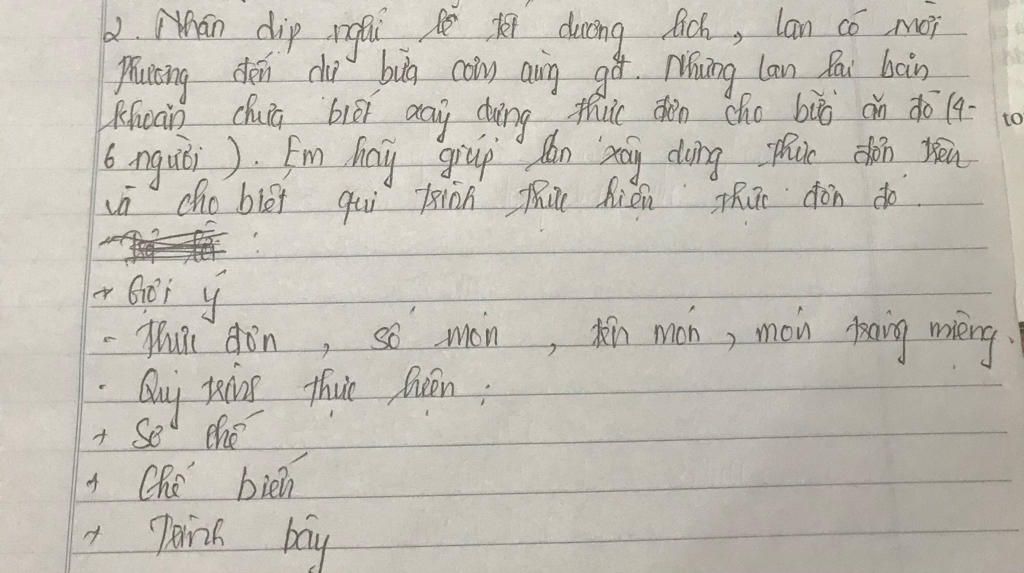 2. Nhân dịp nghỉ lễ tết dương lịch, lan có mời
Phương đến dự bữa cơm cùng gđ. Nhưng lan lại băn
khoăn chưa biết xây dựng thực đơn cho bữa ăn đó (4-
6 người). Em hãy giúp lan xây dựng thực đơn trên
và cho biết qui trình thực hiện thực đơn đó.
+ Gợi ý
- Thực đơn, số món, tên món, món tráng miệng.
- Quy trình thực hiện:
+ Sơ chế
+ Chế biến
+ Trình bày